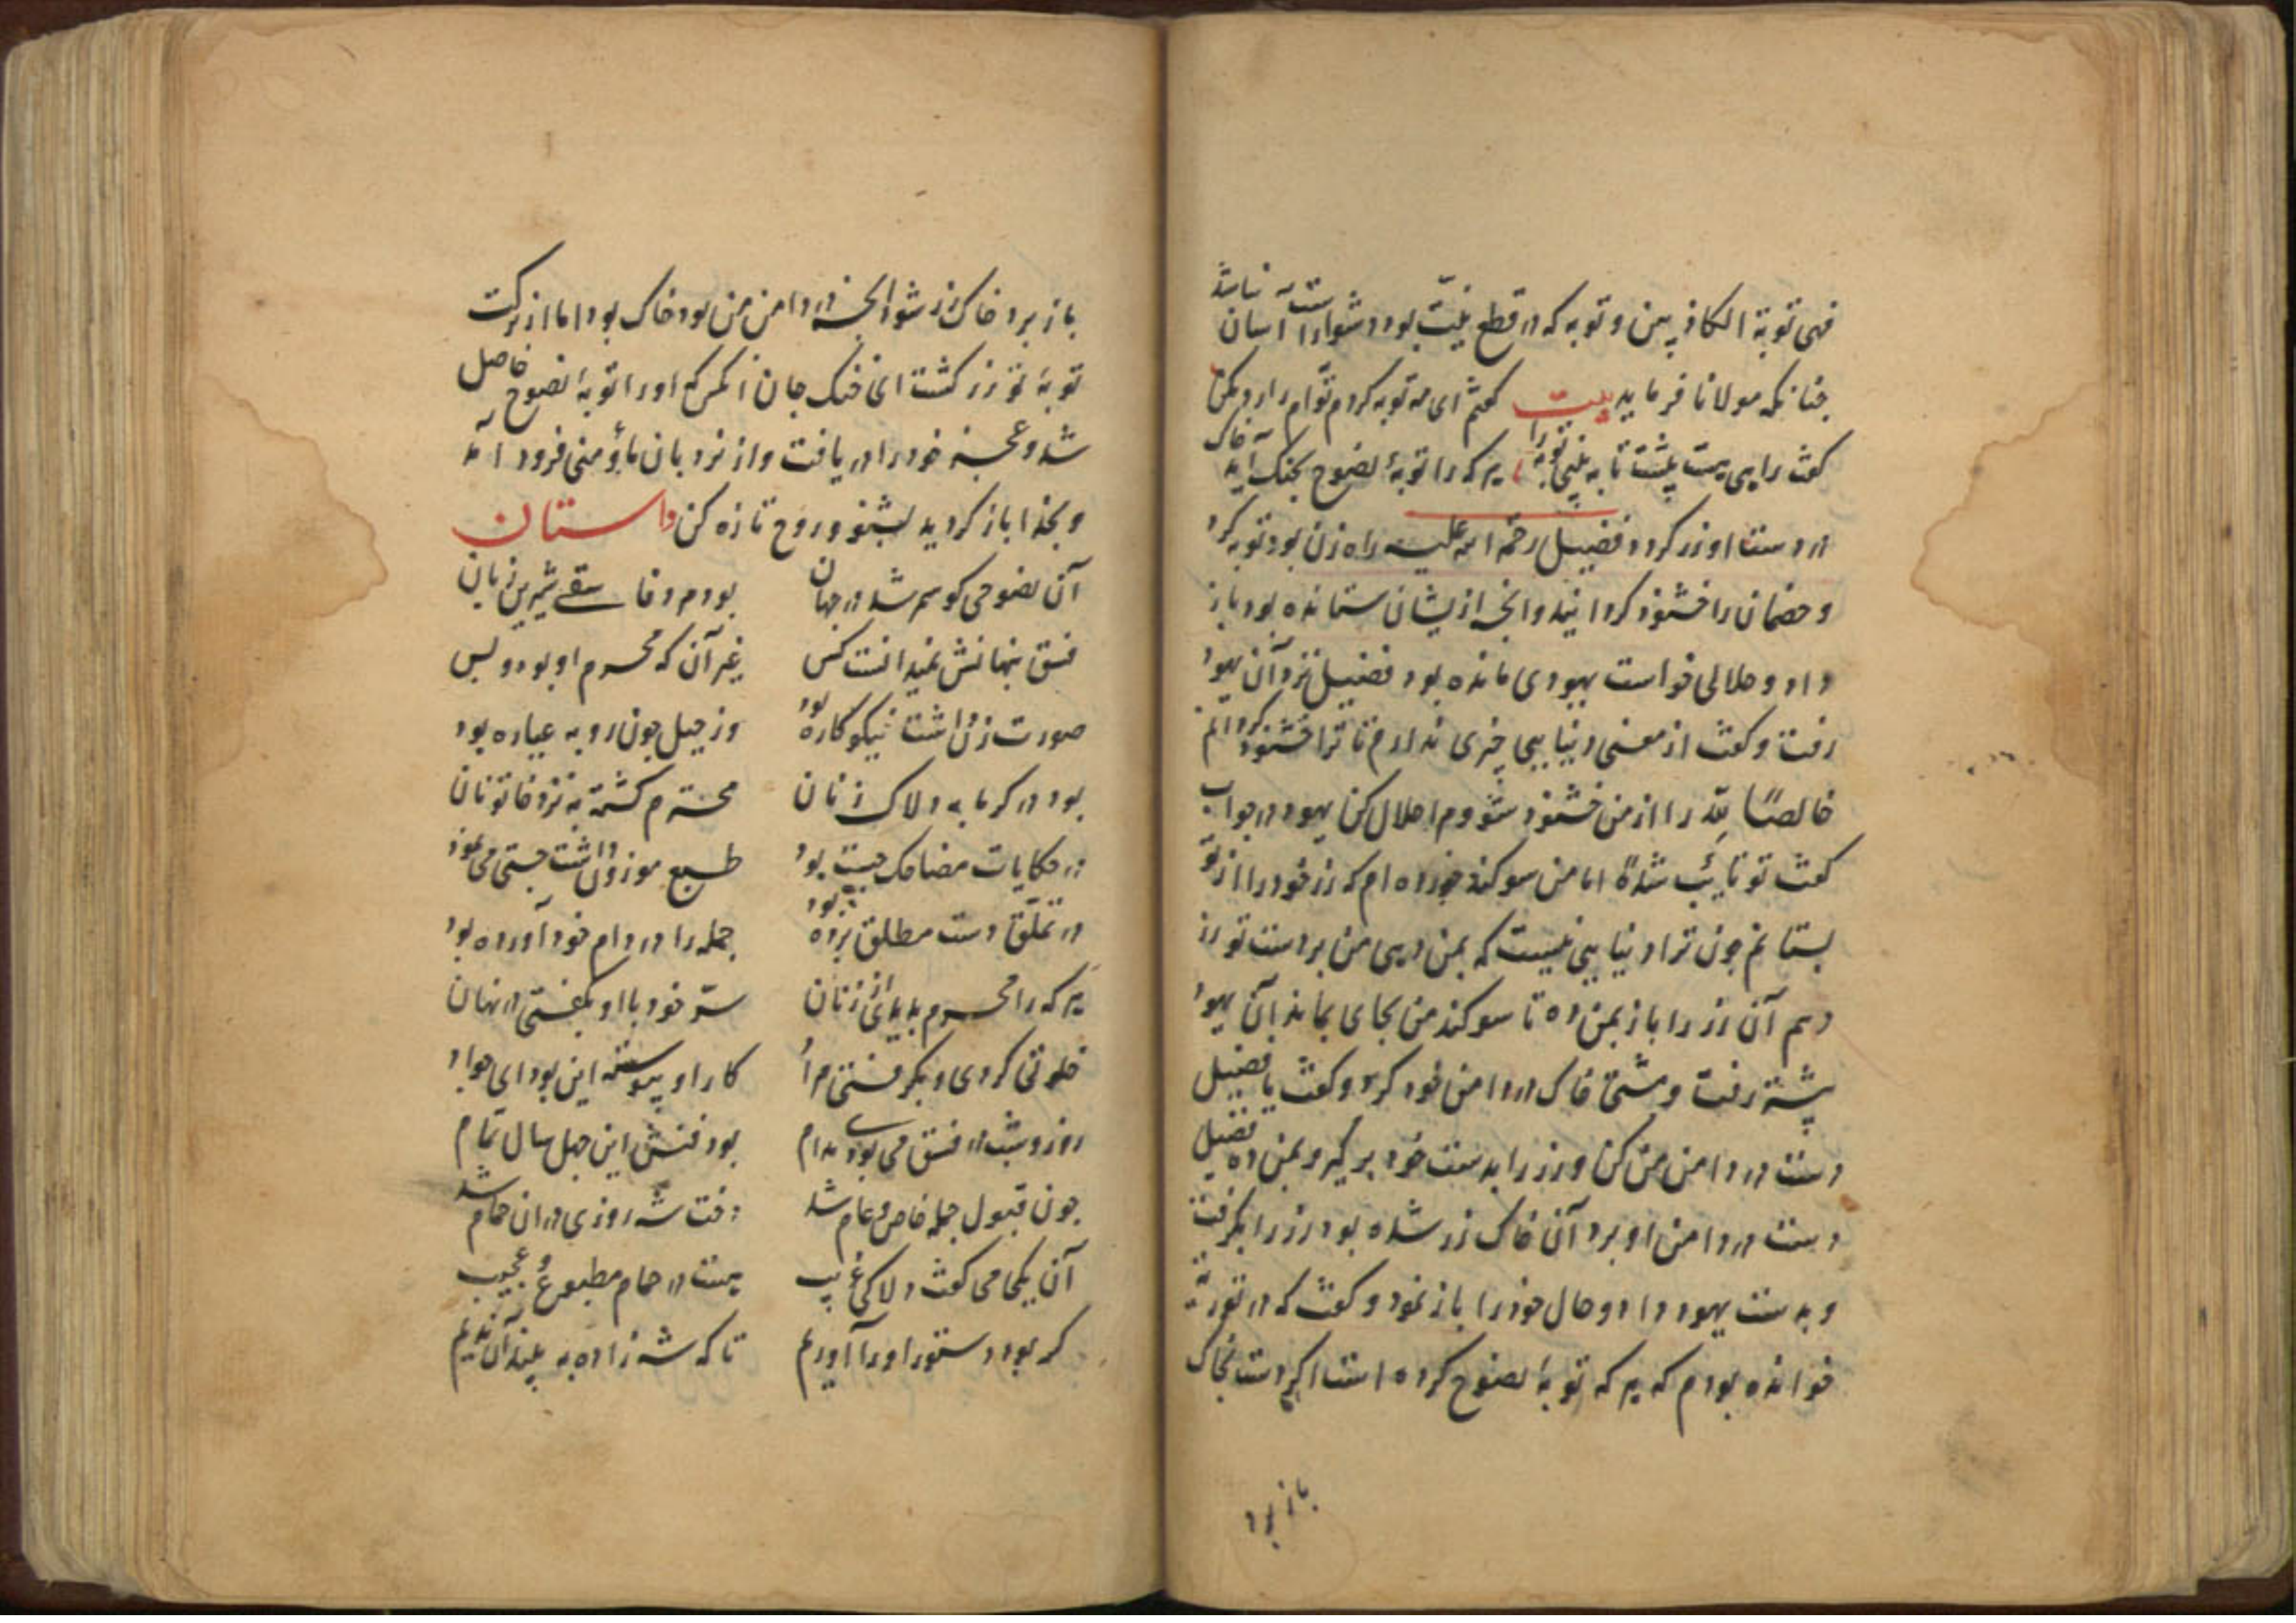 فهی توبة الکاذبین و توبه که در قطع نیت بود دشوار است آسان نباشد
چنانکه مولانا فرماید بیت کفتم ای مه توبه کردم توام را رد مکن
کفت راهی هست پیشت تا به بینی توبه را هر که را توبهٔ نصوح بچنک آید خاک
در دست او زر کردد فضیل رحمة الله علیه راه زن بود توبه کرد
و خصمان را خشنود کردانید وانچه ازیشان ستانده بود باز
داد و حلالی خواست یهودی مانده بود فضیل نزد آن یهود
رفت و کفت از معنی دنیا یی چیزی ندارم تا ترا خشنود کردانم
خالصًا لله را از من خشنود شو و مرا حلال کن یهود در جواب
کفت تو تایب شدهٔ اما من سوکند خورده ام که زر خود را از تو
بستانم چون ترا دنیا یی نیست که بمن دهی من بر دست تو زر
دهم آن زر را باز بمن ده تا سوکند من بجای بماند آن یهود
پشته رفت و مشتی خاک در دامن خود کرد و کفت یا فضیل
دست در دامن من کن و زر را بدست خود بر کیر و بمن ده فضیل
دست در دامن او برد آن خاک زر شده بود زر را بکرفت
و بدست یهود داد و حال خود را باز نمود و کفت که در توریة
خوانده بودم که هر که توبهٔ نصوح کرده است اکر دست بخاک
باز برد
باز برد خاک زر شود انچه در دامن من بود خاک بود اما از برکت
توبهٔ تو زر کشت ای خنک جان آنکس که او را توبهٔ نصوح حاصل
شد و عجز خود را دریافت و از نردبان ما و منی فرود آمد
و بخدا باز کردید بشنو و روح تازه کن داستان
آن نصوحی کو سمر شد در جهان بود مرد فاسقی شیرین زبان
فسق پنهانش نمیدانست کس غیر آن که محرم او بود و بس
صورت زن داشت نیکو کاره بود وز حیل چون روبه عیاره بود
بود در کرمابه دلاک زنان محترم کشته به نزد خاتونان
در حکایات مضاحک چست بود طبع موزون داشت چستی می نمود
در تملق دست مطلق برده بود جمله را در دام خود آورده بود
هر که را محرم بدیدی از زنان سر خود با او بکفتی در نهان
خلوتی کردی و بکرفتی مراد کار او پیوسته این بود ای جواد
روز و شب در فسق می بودی مدام بود فنش این چهل سال تمام
چون قبول جمله خاص و عام شد دخت شه روزی در ان حمام شد
آن یکی می کفت دلاکی غریب هست در حمام مطبوع و عجیب
کر بود دستور او را آوریم تا که شه زاده به بیند آن ندیم